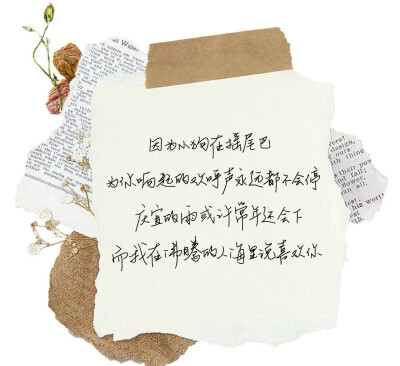 因为小狗在摇尾巴
为你响起的欢呼声永远都不会停
庆宜的雨或许常年还会下
而我在沸腾的人海里说喜欢你